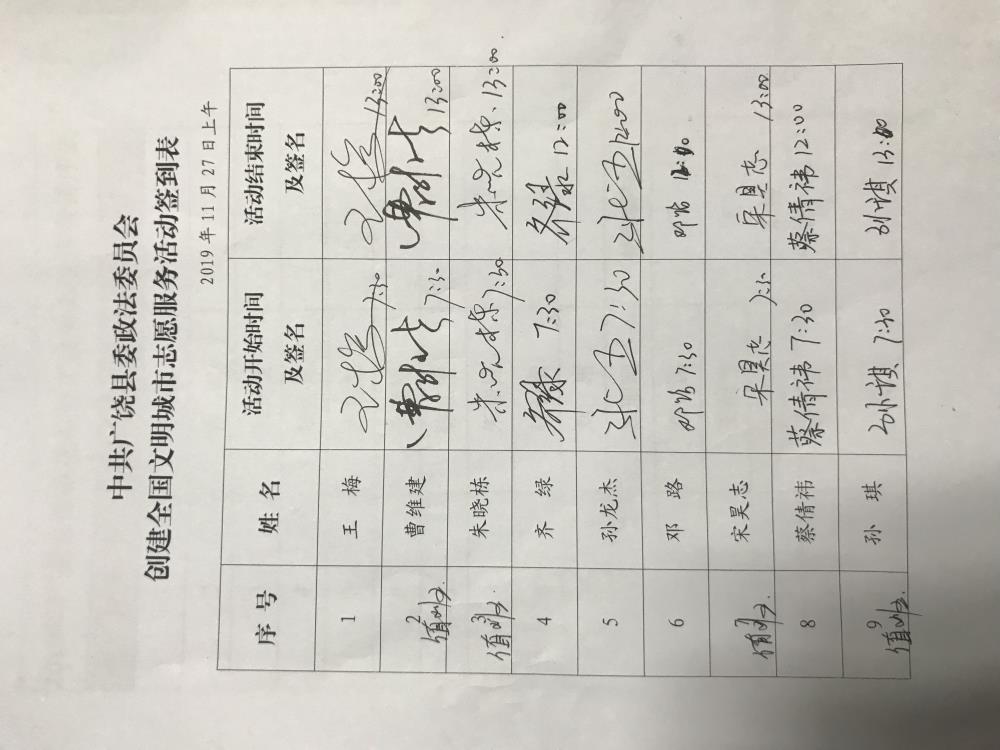 中共广饶县委政法委员会
创建全国文明城市志愿服务活动签到表
2019 年 11 月 27 日上午
序 号 姓 名 活动开始时间及签名 活动结束时间及签名
1 王 梅 7:30 13:00
2 曹维建 7:30 13:00
3 朱晓栋 7:30 13:00
4 齐 绿 齐绿 7:30 齐绿 12:00
5 孙龙杰 7:30 12:00
6 邓 路 邓路 7:30 邓路 12:00
7 宋昊志 宋昊志 7:30 宋昊志 13:00
8 蔡倩祎 蔡倩祎 7:30 蔡倩祎 12:00
9 孙 琪 孙琪 7:30 孙琪 13:00